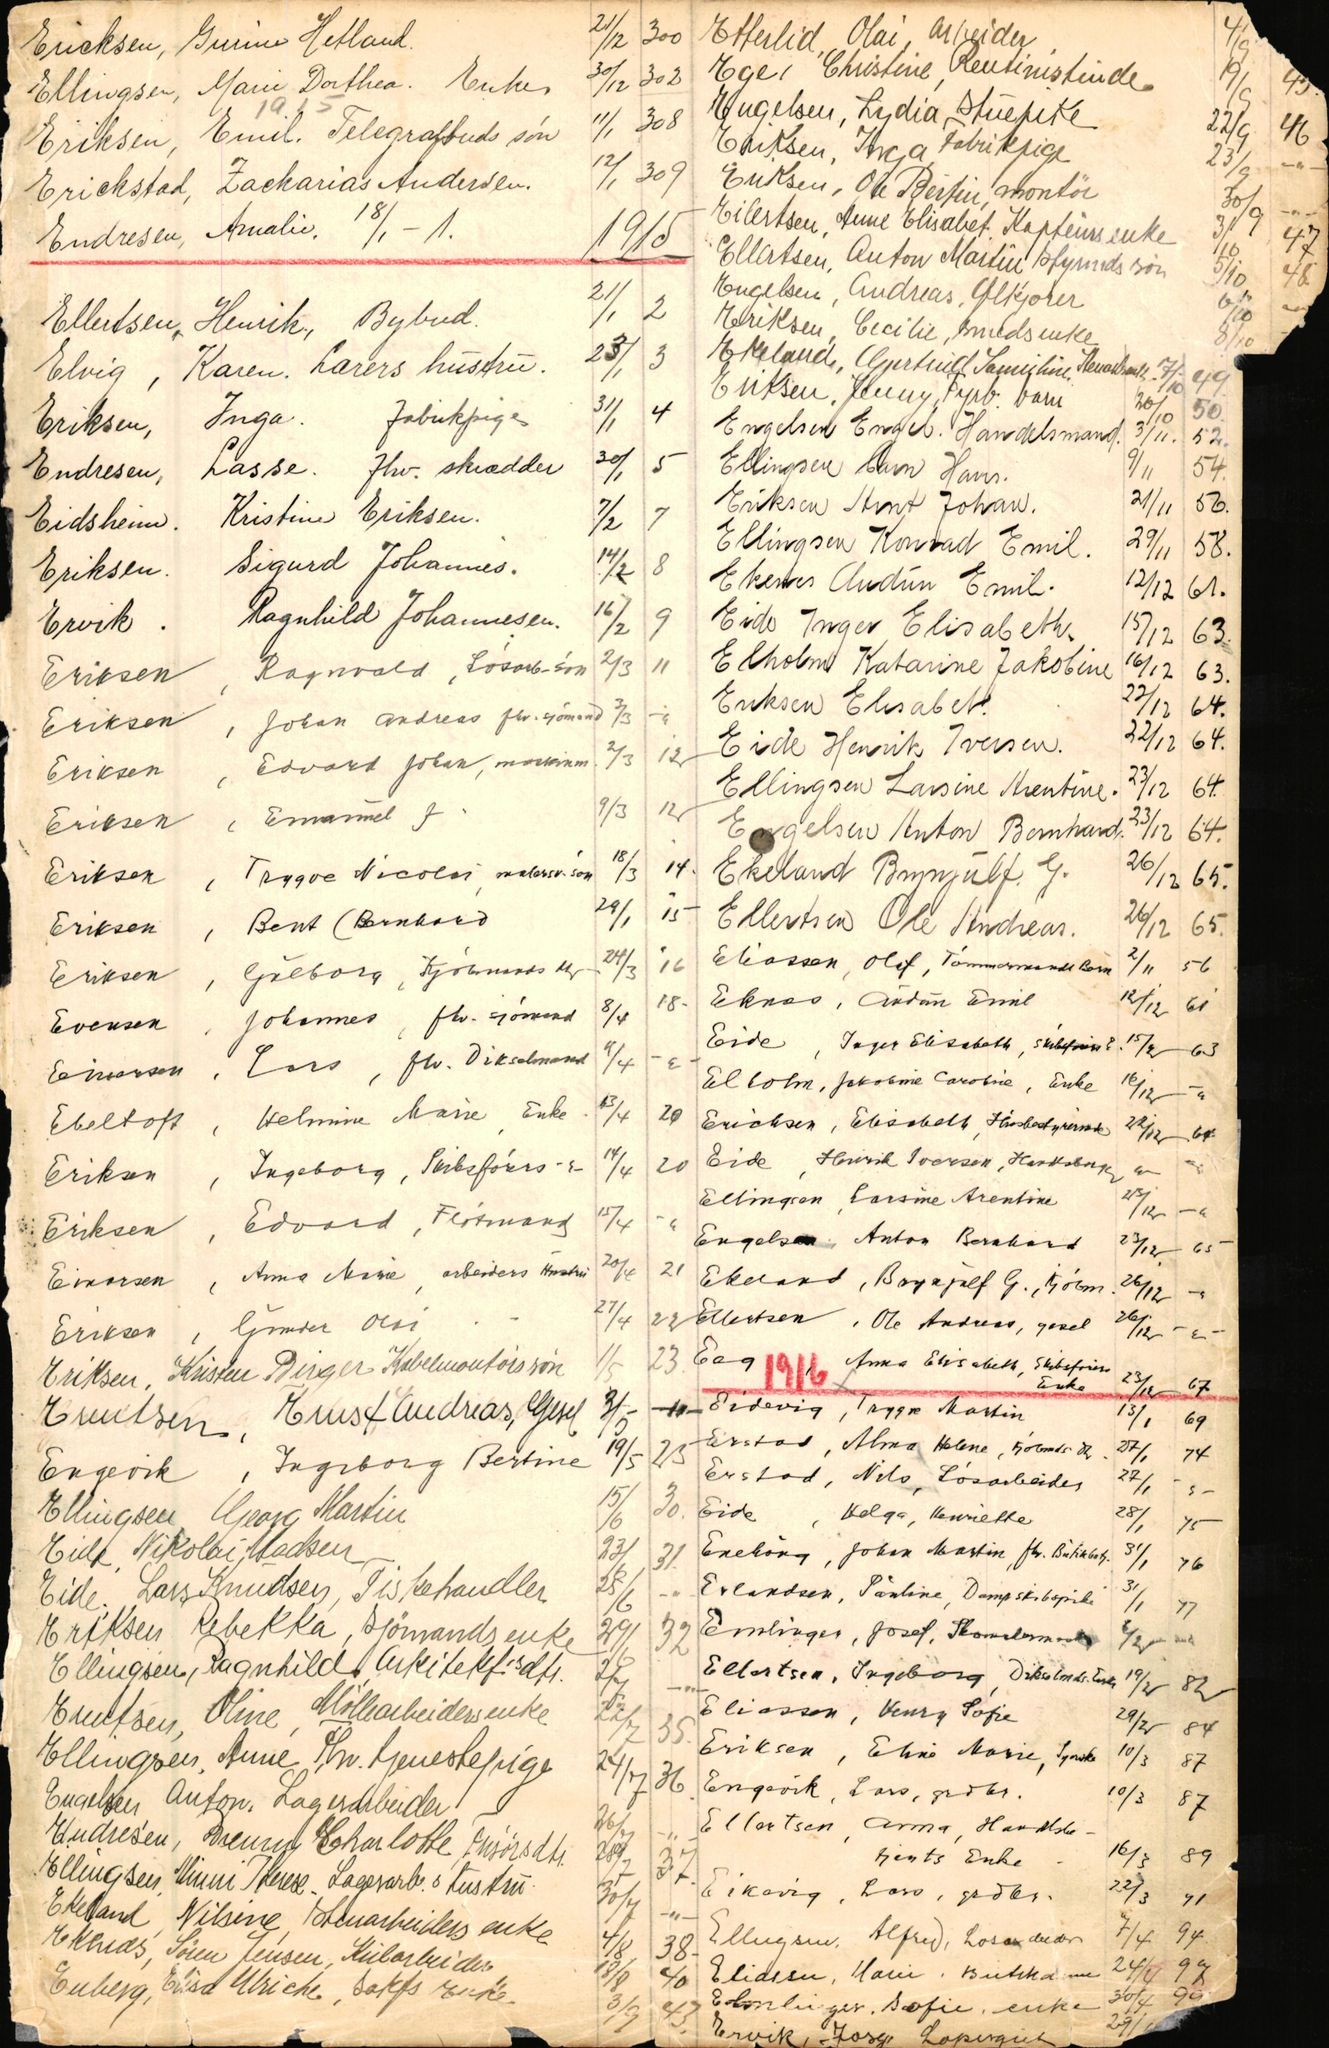 Ericksen, Gurine Hetland. 21/12 300
Ellingsen, Marie Dorthea. Enke 30/12 302
1915
Eriksen, Emil. Telegrafbuds søn 11/1 308
Erickstad, Zacharias Andersen. 12/1 309
Endresen, Amalie. 18/1 - 1. 1915
Ellertsen, Henrik, Bybud. 21/1 2
Elvig, Karen. Lærers hustru. 23/1 3
Eriksen, Inga. Fabrikpige 31/1 4
Endresen, Lasse. fhv. skrædder 30/1 5
Eidsheim. Kristine Eriksen. 7/2 7
Eriksen. Sigurd Johannes. 14/2 8
Ervik. Ragnhild Johannesen. 16/2 9
Eriksen, Ragnvald, Løsarb-søn 2/3 11
Eriksen, Johan Andreas fhv. sjömand 2/3 -"
Eriksen, Edvard Johan, maskinm. 2/3 12
Eriksen, Emanuel J. 9/3 12
Eriksen, Trygve Nicolai, malersv. søn 18/3 14.
Eriksen, Bent (Bernhard 29/1 15
Eriksen, Gülborg, Kjöbmands 24/3 16
Evensen, Johannes, fhv. sjömand 8/4 18-
Einarsen, Lars, fhv. Dikselmand 9/4 -"-
Ebeltoft, Helmine Marie Enke 13/4 20
Eriksen, Ingeborg, Skibsförers - 14/4 20
Eriksen, Edvard, Fløtmand 15/4 -"
Einarsen, Anna Marie, arbeiders Hustru 20/4 21
Eriksen, Gunder Olai 27/4 22
Eriksen, Kristen Birger Kabelmontørs søn 1/5 23.
Erntsen, Ernst Andreas, Gesel 3/5 -"-
Engevik, Ingeborg Bertine 19/5 25
Ellingsen Georg Martin 15/6 30.
Eide, Nikolai Madsen 23/6 31.
Eide. Lars Knudsen, Fiskehandler 25/6 -"-
Eriksen Rebekka, Sjömands enke 29/6 32
Ellingsen, Ragnhild, Arkitekts dtr. 2/7 -"-
Erntsen, Oline, Møllearbeiders enke 22/7 35.
Ellingsen, Anne, Fhv. tjenestepige 24/7 36.
Engelsen Anton, Lagerarbeider 26/7 -"-
Endresen, Drenny Charlotte, dtr. 28/7 37.
Ellingsen, Minni Therese. Lagerarb. s Hustru. 30/7 -"-
Ekeland Nilsine, Stenarbeiders enke 4/8 38-
Eknæs, Søren Jensen, Kularbeider 13/8 40
Enberg, Elisa Ulriche, enke. 3/9 43.
Etterlid, Olai, arbeider 4/9
Ege, Christine, Rentinistinde 19/9 45.
Engelsen, Lydia, Stuepike 22/9 46
Eriksen, Inga, Fabrikpige 23/9 -"-
Eriksen, Ole Bertin, montör 30/9 -"-
Eilertsen, Anne Elisabet, Kapteins enke 3/10 47
Ellertsen, Anton Martin Styrmds søn 5/10 48
Engelsen, Andreas, Ølkjører 6/10
Eriksen, Cecilie, smeds enke 8/10
Ekeland, Gjertrud 7/10 49
Eriksen, Jenny, Fyrb. barn 20/10 50.
Engelsen Engel. Handelsmand. 3/11. 52.
Ellingsen Hans. 9/11 54.
Eriksen Arnt Johan. 21/11 56.
Ellingsen Konrad Emil. 29/11 58.
Ekenes Audun Emil. 12/12 61.
Eide Inger Elisabeth. 15/12 63.
Elholm Katarine Jakobine 16/12 63.
Eriksen Elisabet. 22/12 64.
Eide Henrik Iversen. 22/12 64.
Ellingsen Larsine Arentine. 23/12 64.
Engelsen Anton Bernhard. 23/12 64.
Ekeland Brynjülf G. 26/12 65.
Ellertsen Ole Andreas. 26/12 65.
Eliassen, Olaf, Tømmermands Barn 2/11 56
Eknæs, Audun Emil 12/12 61
Eide, Inger Elisabeth, Skibsförers E. 15/12 63
Elholm, Jakobine Caroline, Enke 16/12 -"
Erichsen, Elisabeth, Husbestyrerinde 22/12 64
Eide, Henrik Iversen, Handelsborger -"- -"-
Ellingsen Larsine Arentine 23/12 -"
Engelsen. Anton Bernhard 23/12 65
Ekeland, Brynjulf G., Kjöbm. 26/12 -"
Ellertsen, Ole Andreas, gesel 26/12 -"-
Eeg, Anna Elisabeth, Skibsförers Enke 23/12 67
1916
Eidevig, Trygve Martin 13/1 69
Erstad, Alma Helene, Kjöbmds 27/1 74
Erstad, Nils, Løsarbeider 27/1 -"-
Eide, Helga, Henriette 28/1 75
Enehaug, Johan Martin fhv. 31/1 76
Erlandsen, Pauline, Dampskibspike 31/1 77
Emlinger, Josef, 2/2 -"-
Ellertsen, Ingeborg, Dikselmds. Enke 19/2 82
Eliassen, Henry Sofie 29/2 84
Eriksen, Eline Marie, Syerske 10/3 87
Engevik, Lars, grdbr. 10/3 87
Ellertsen, Anna, Handels-
bjents Enke - 16/3 89
Eikevig, Lars, grdbr. 22/3 91
Ellingsen. Alfred, Løsarbeider 7/4 94
Eliassen, Marie. 24/4 97
Emlinger. Sofie. enke 30/4 99
Ervik, 29/1